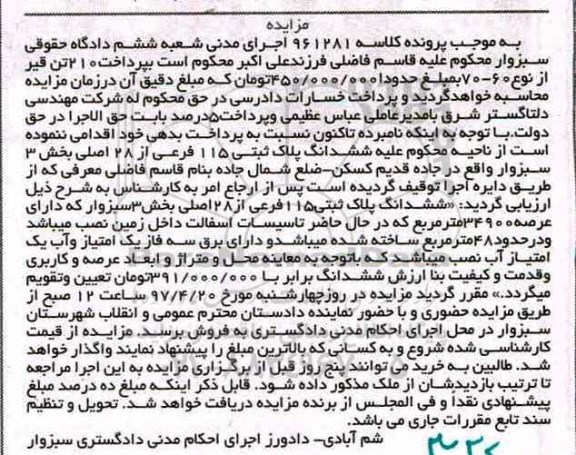 مزایده
به موجب پرونده کلاسه ۹۶۱۲۸۱ اجرای مدنی شعبه ششم دادگاه حقوقی
سبزوار محکوم علیه قاسم فاضلی فرزندعلی اکبر محکوم است بپرداخت۲۱۰تن قیر
از نوع۶۰-۷۰بمبلغ حدودا۴۵۰/۰۰۰/۰۰۰تومان که مبلغ دقیق آن درزمان مزایده
محاسبه خواهدگردید و پرداخت خسارات دادرسی در حق محکوم له شرکت مهندسی
دلتاگستر شرق بامدیرعاملی عباس عظیمی وپرداخت۵درصد بابت حق الاجرا در حق
دولت.با توجه به اینکه نامبرده تاکنون نسبت به پرداخت بدهی خود اقدامی ننموده
است از ناحیه محکوم علیه ششدانگ پلاک ثبتی ۱۱۵ فرعی از ۲۸ اصلی بخش ۳
سبزوار واقع در جاده قدیم کسکن-ضلع شمال جاده بنام قاسم فاضلی معرفی که از
طریق دایره اجرا توقیف گردیده است پس از ارجاع امر به کارشناس به شرح ذیل
ارزیابی گردید: «ششدانگ پلاک ثبتی۱۱۵فرعی از۲۸اصلی بخش۳سبزوار که دارای
عرصه۳۴۹۰۰مترمربع که در حال حاضر تاسیسات آسفالت داخل زمین نصب میباشد
ودرحدود۴۸مترمربع ساخته شده میباشدو دارای برق سه فاز یک امتیاز وآب یک
امتیاز آب نصب میباشد که باتوجه به معاینه محل و متراژ و ابعاد عرصه و کاربری
وقدمت و کیفیت بنا ارزش ششدانگ برابر با ۳۹۱/۰۰۰/۰۰۰تومان تعیین وتقویم
میگردد.» مقرر گردید مزایده در روزچهارشنبه مورخ ۹۷/۴/۲۰ ساعت ۱۲ صبح از
طریق مزایده حضوری و با حضور نماینده دادستان محترم عمومی و انقلاب شهرستان
سبزوار در محل اجرای احکام مدنی دادگستری به فروش برسد. مزایده از قیمت
کارشناسی شده شروع و به کسانی که بالاترین مبلغ را پیشنهاد نمایند واگذار خواهد
شد. طالبین به خرید می توانند پنج روز قبل از برگزاری مزایده به این اجرا مراجعه
تا ترتیب بازدیدشان از ملک مذکور داده شود. قابل ذکر اینکه مبلغ ده درصد مبلغ
پیشنهادی نقداً و فی المجلس از برنده مزایده دریافت خواهد شد. تحویل و تنظیم
سند تابع مقررات جاری می باشد.
شم آبادی- دادورز اجرای احکام مدنی دادگستری سبزوار